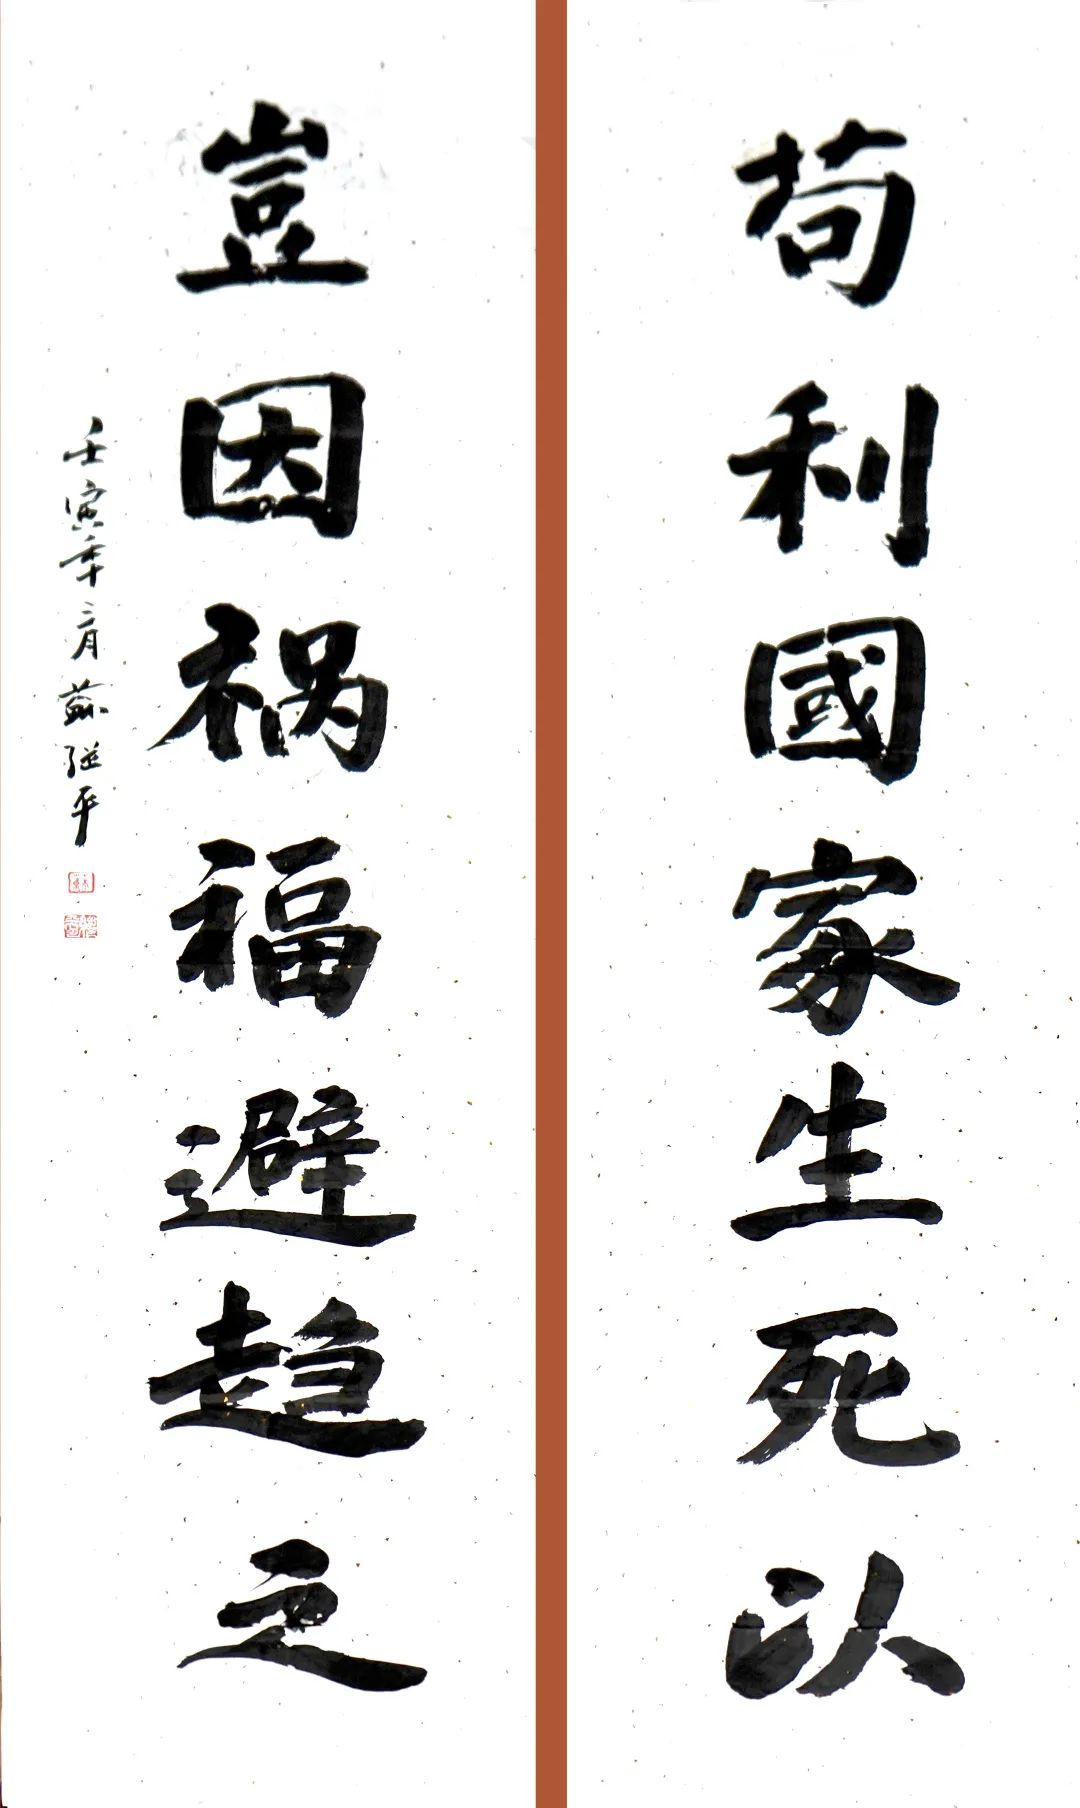 苟利國家生死以
豈因祸福避趋之
壬寅年二月蘇继平